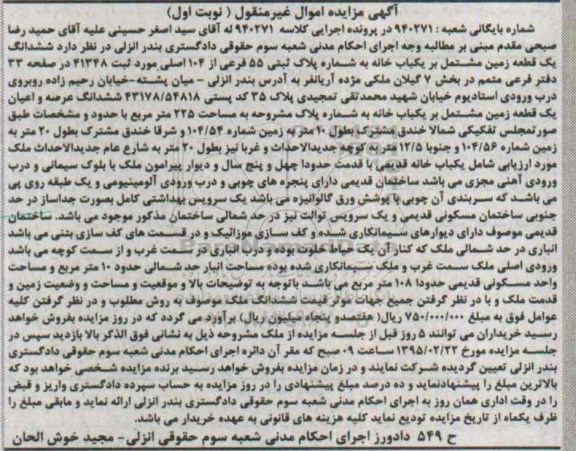 آگهی مزایده اموال غیرمنقول ( نوبت اول)
شماره بایگانی شعبه : ۹۴۰۲۷۱ در پرونده اجرایی کلاسه ۹۴۰۲۷۱ له آقای سید اصغر حسینی علیه آقای حمید رضا
صبحی مقدم مبنی بر مطالبه وجه اجرای احکام مدنی شعبه سوم حقوقی دادگستری بندر انزلی در نظر دارد ششدانگ
یک قطعه زمین مشتمل بر یکباب خانه به شماره پلاک ثبتی ۵۵ فرعی از ۱۰۴ اصلی مورد ثبت ۴۱۳۴۸ در صفحه ۳۳
دفتر فرعی متمم در بخش ۷ گیلان ملکی مژده آریانفر به آدرس بندر انزلی - میان پشته-خیابان رحیم زاده روبروی
درب ورودی استادیوم خیابان شهید محمدتقی تمجیدی پلاک ۳۵ کد پستی ۴۳۱۷۸/۵۴۸۱۸ ششدانگ عرصه و اعیان
یک قطعه زمین مشتمل بر یکباب خانه به شماره پلاک مشروحه به مساحت ۲۲۵ متر مربع با حدود و مشخصات طبق
صورتمجلس تفکیکی شمالا خندق مشترک بطول ۱۰ متر به زمین شماره ۱۰۴/۵۴ و شرقا خندق مشترک بطول ۲۰ متر به
زمین شماره ۱۰۴/۵۶ و جنوبا ۱۲/۵ متر به کوچه جدیدالاحداث و غربا نیز بطول ۲۰ متر به شارع عام جدیدالاحداث ملک
مورد ارزیابی شامل یکباب خانه قدیمی با قدمت حدودا چهل و پنج سال و دیوار پیرامون ملک با بلوک سیمانی و درب
ورودی آهنی مجزی می باشد ساختمان قدیمی دارای پنجره های چوبی و درب ورودی آلومینیومی و یک طبقه روی پی
می باشد که سربندی آن چوبی با پوشش ورق گالوانیزه می باشد یک سرویس بهداشتی کامل بصورت جداساز در حد
جنوبی ساختمان مسکونی قدیمی و یک سرویس توالت نیز در حد شمالی ساختمان مذکور موجود می باشد. ساختمان
قدیمی موصوف دارای دیوارهای سیمانکاری شده و کف سازی موزائیک و در قسمت های کف سازی بتنی می باشد
انباری در حد شمالی ملک که کنار آن یک حیاط خلوت بوده و درب انباری در سمت غرب و از سمت کوچه می باشد
ورودی اصلی ملک سمت غرب و ملک سیمانکاری شده بوده مساحت انبار حد شمالی حدود ۱۰ متر مربع و مساحت
واحد مسکونی قدیمی حدودا ۱۰۸ متر مربع می باشد باتوجه به توضیحات بالا و موقعیت و مساحت و وضعیت زمین و
قدمت ملک و با در نظر گرفتن جمیع جهات موثر قیمت ششدانگ ملک موصوف به روش مطلوب و در نظر گرفتن کلیه
عوامل فوق به مبلغ ۷۵۰/۰۰۰/۰۰۰ ریال( هفتصدو پنجاه میلیون ریال) برآورد می گردد که در روز مزایده بفروش خواهد
رسید خریداران می توانند ۵ روز قبل از جلسه مزایده از ملک مشروحه ذیل به نشانی فوق الذکر بالا بازدید سپس در
جلسه مزایده مورخ ۱۳۹۵/۰۲/۲۲ ساعت ۰۹ صبح که مقر آن دائره اجرای احکام مدنی شعبه سوم حقوقی دادگستری
بندر انزلی تعیین گردیده شرکت نمایند و در زمان مزایده بفروش خواهد رسید برنده مزایده شخصی خواهد بود که
بالاترین مبلغ را پیشنهادنماید و ده درصد مبلغ پیشنهادی را در روز مزایده به حساب سپرده دادگستری واریز و قبض
را در وقت اداری همان روز به اجرای احکام مدنی شعبه سوم حقوقی دادگستری بندر انزلی ارائه نماید و مابقی مبلغ را
ظرف یکماه از تاریخ مزایده تودیع نماید کلیه هزینه های قانونی به عهده خریدار می باشد.
ح ۵۴۹ دادورز اجرای احکام مدنی شعبه سوم حقوقی انزلی- مجید خوش الحان